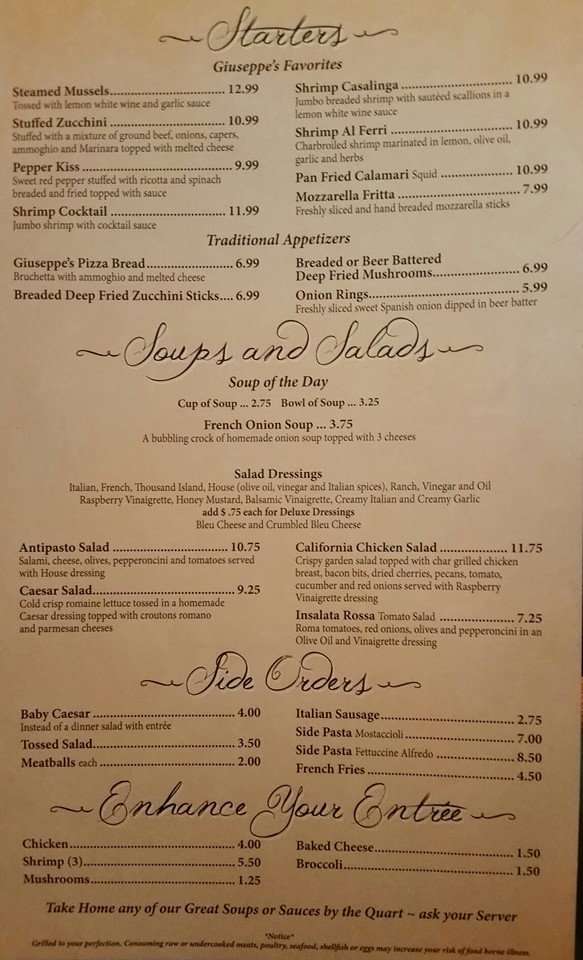 Starters
Giuseppe's Favorites
Steamed Mussels.................................... 12.99
Tossed with lemon white wine and garlic sauce
Stuffed Zucchini .................................... 10.99
Stuffed with a mixture of ground beef, onions, capers,
ammoghio and Marinara topped with melted cheese
Pepper Kiss ............................................. 9.99
Sweet red pepper stuffed with ricotta and spinach
breaded and fried topped with sauce
Shrimp Cocktail .................................... 11.99
Jumbo shrimp with cocktail sauce
Shrimp Casalinga .................................... 10.99
Jumbo breaded shrimp with sautéed scallions in a
lemon white wine sauce
Shrimp Al Ferri .................................... 10.99
Charbroiled shrimp marinated in lemon, olive oil,
garlic and herbs
Pan Fried Calamari Squid ........................ 10.99
Mozzarella Fritta .................................... 7.99
Freshly sliced and hand breaded mozzarella sticks
Traditional Appetizers
Giuseppe's Pizza Bread........................... 6.99
Bruchetta with ammoghio and melted cheese
Breaded Deep Fried Zucchini Sticks.... 6.99
Breaded or Beer Battered
Deep Fried Mushrooms........................... 6.99
Onion Rings............................................. 5.99
Freshly sliced sweet Spanish onion dipped in beer batter
Soups and Salads
Soup of the Day
Cup of Soup ... 2.75 Bowl of Soup ... 3.25
French Onion Soup ... 3.75
A bubbling crock of homemade onion soup topped with 3 cheeses
Salad Dressings
Italian, French, Thousand Island, House (olive oil, vinegar and Italian spices), Ranch, Vinegar and Oil
Raspberry Vinaigrette, Honey Mustard, Balsamic Vinaigrette, Creamy Italian and Creamy Garlic
add $ .75 each for Deluxe Dressings
Bleu Cheese and Crumbled Bleu Cheese
Antipasto Salad .................................... 10.75
Salami, cheese, olives, pepperoncini and tomatoes served
with House dressing
Caesar Salad............................................. 9.25
Cold crisp romaine lettuce tossed in a homemade
Caesar dressing topped with croutons romano
and parmesan cheeses
California Chicken Salad ........................ 11.75
Crispy garden salad topped with char grilled chicken
breast, bacon bits, dried cherries, pecans, tomato,
cucumber and red onions served with Raspberry
Vinaigrette dressing
Insalata Rossa Tomato Salad ........................ 7.25
Roma tomatoes, red onions, olives and pepperoncini in an
Olive Oil and Vinaigrette dressing
Side Orders
Baby Caesar ............................................. 4.00
Instead of a dinner salad with entrée
Tossed Salad............................................. 3.50
Meatballs each .......................................... 2.00
Italian Sausage.......................................... 2.75
Side Pasta Mostaccioli .............................. 7.00
Side Pasta Fettuccine Alfredo ..................... 8.50
French Fries ............................................. 4.50
Enhance Your Entrée
Chicken.................................................... 4.00
Shrimp (3)................................................ 5.50
Mushrooms............................................... 1.25
Baked Cheese............................................ 1.50
Broccoli.................................................... 1.50
Take Home any of our Great Soups or Sauces by the Quart ~ ask your Server
*Notice*
Grilled to your perfection. Consuming raw or undercooked meats, poultry, seafood, shellfish or eggs may increase your risk of food borne illness.